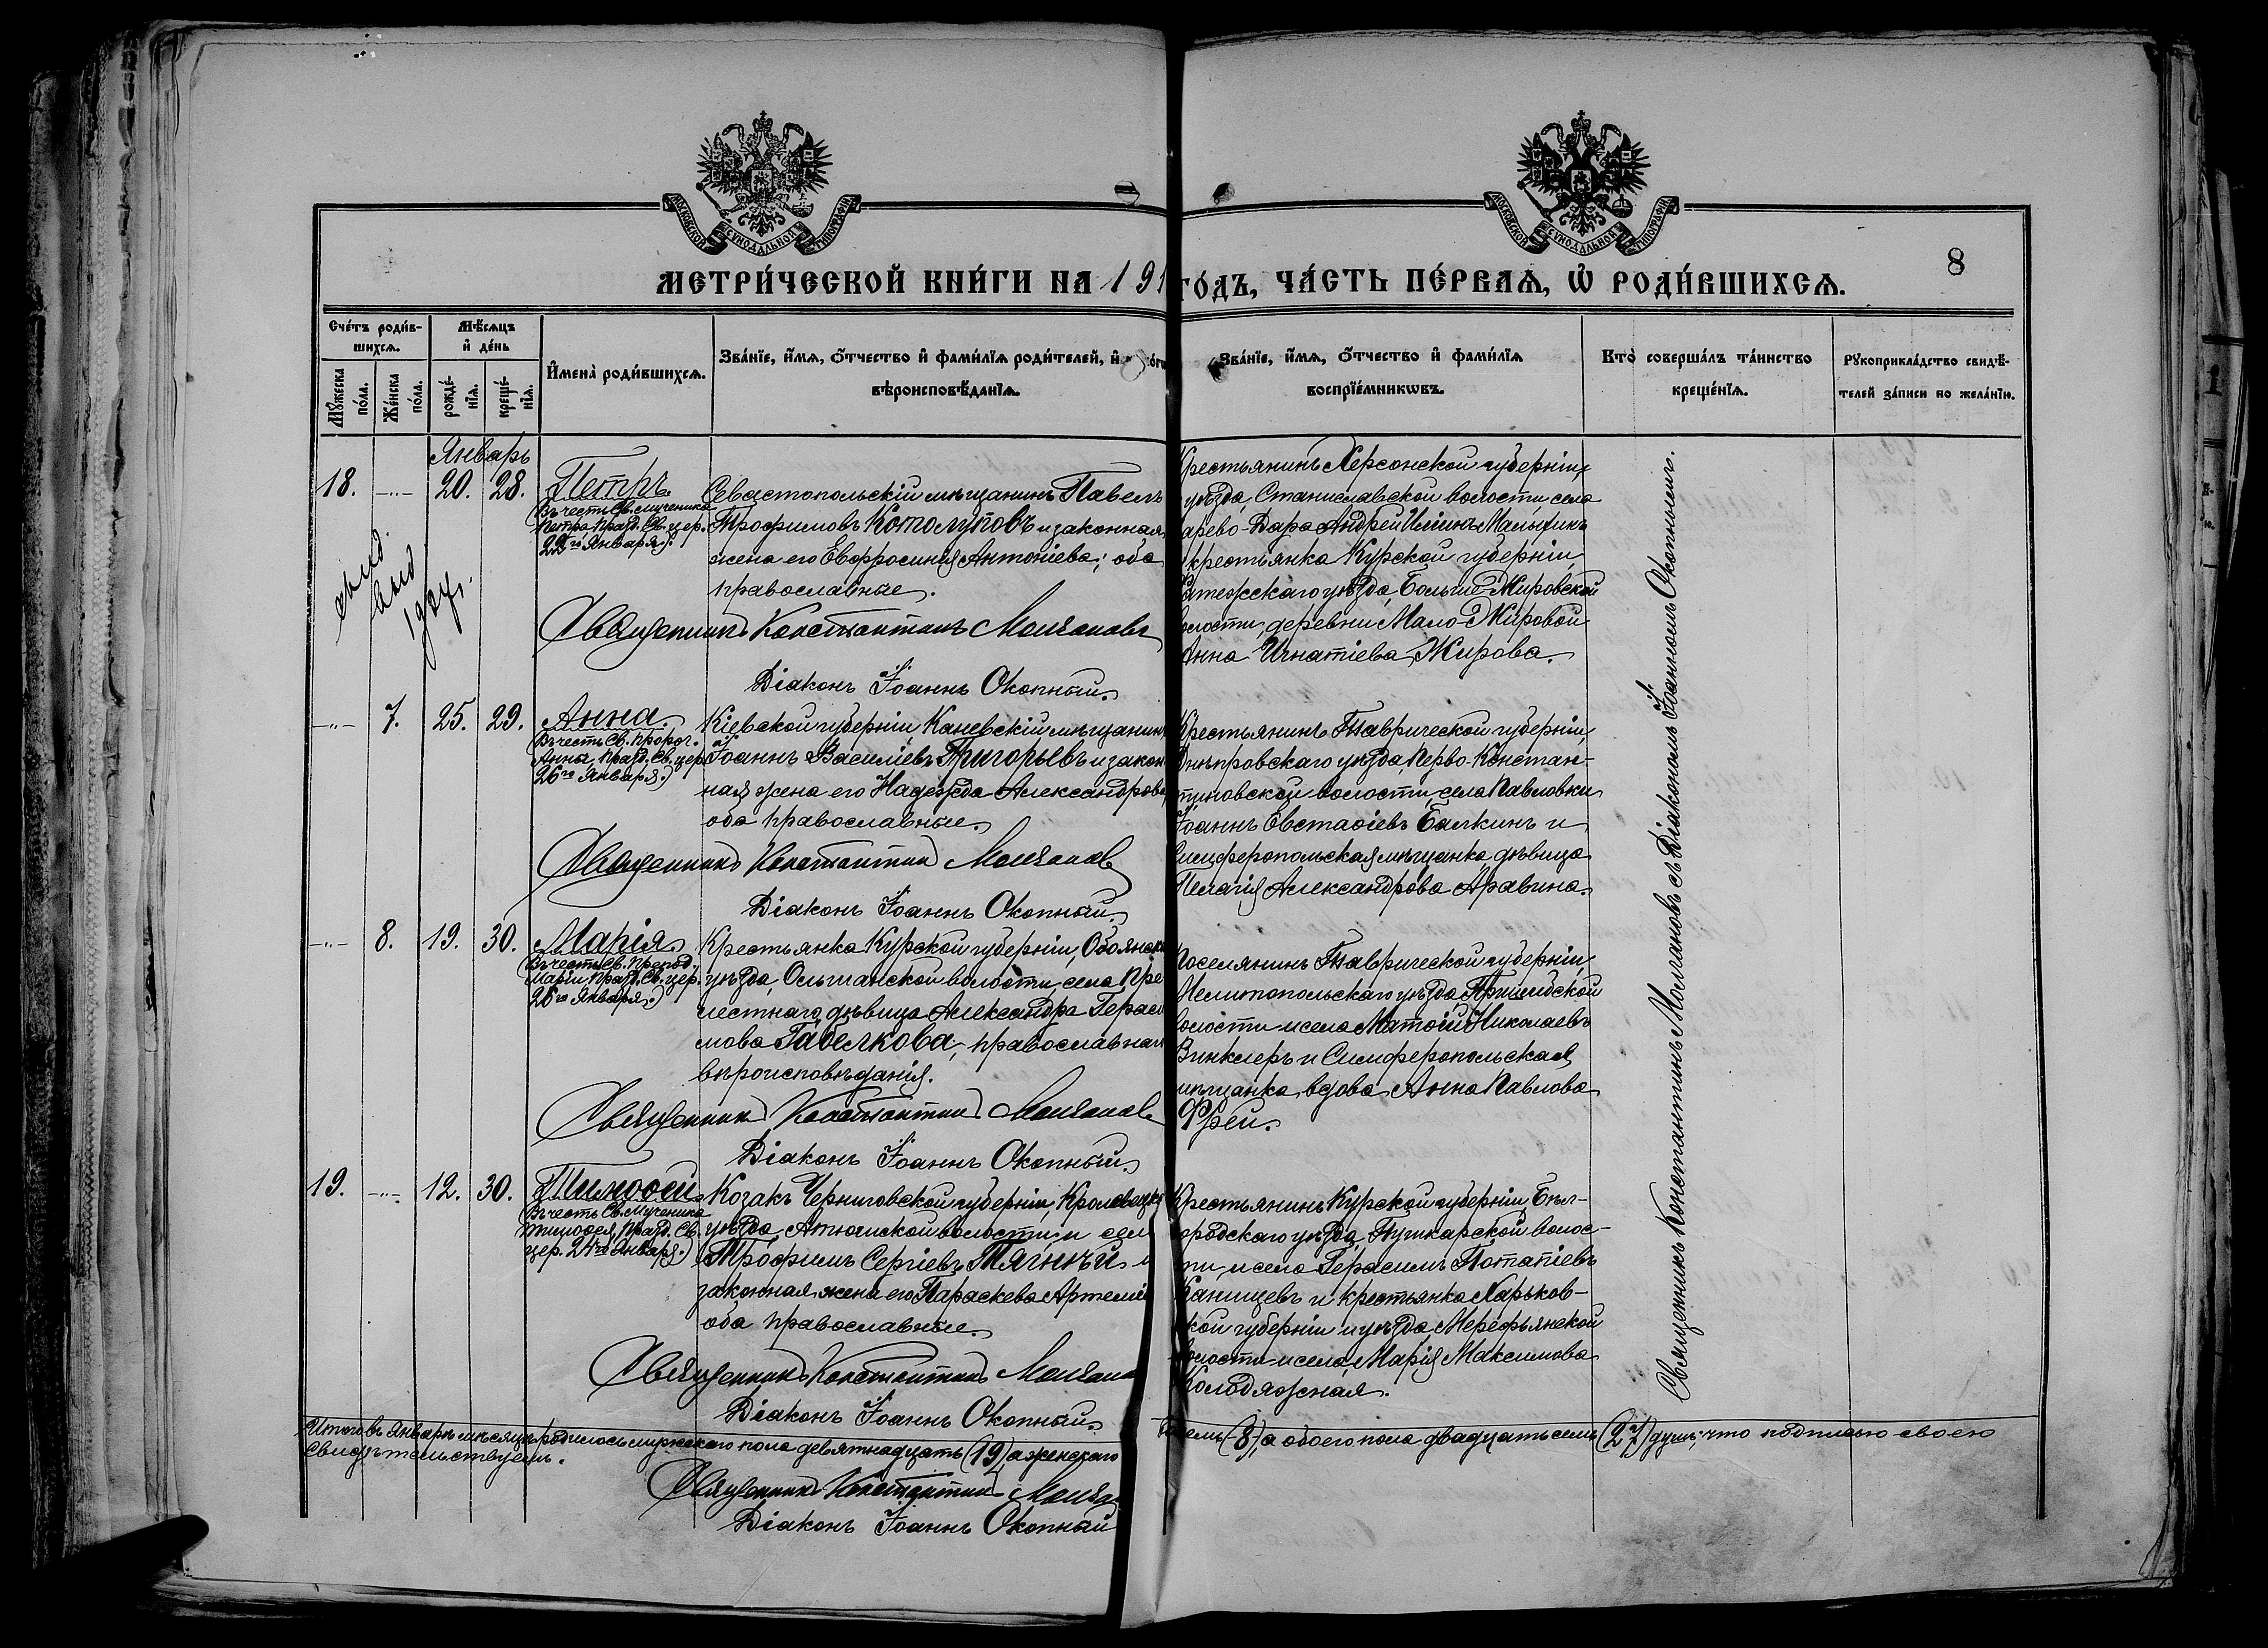 МОСКОВСКОЙ СѴНОДАЛЬНОЙ ТИПОГРАФІИ
МОСКОВСКОЙ СѴНОДАЛЬНОЙ ТИПОГРАФІИ
8
МЕТРИ́ЧЕСКОЙ КНИ́ГИ НА 191 ГО́ДЪ, ЧА́СТЬ ПЕ́РВАѦ, Ѡ҆ РОДИ́ВШИХСѦ.
Сче́тъ роди́в-
шихсѧ.
Мѣ́сѧцъ
и҆ де́нь
Мꙋ́жеска
по́ла.
Же́нска
по́ла.
рожде́-
нїѧ.
креще́-
нїѧ.
И҆мена̀ роди́вшихсѧ.
Зва́нїе, и҆́мѧ, ѻ҆́тчество и҆ фами́лїѧ роди́телей, и҆
вѣроисповѣ́данїѧ.
Зва́нїе, и҆́мѧ, ѻ҆́тчество и҆ фами́лїѧ
воспрїе́мникѡвъ.
Кто̀ соверша́лъ та́инство
креще́нїѧ.
Рꙋкоприкла́дство свидѣ́-
телей за́писи по жела́нїю.
Январь
18. —"— 20. 28.
Петръ.
(Въ честь Св. мученика
Петра, празд. Св. цер.
22го Января.)
Севастопольскій мѣщанинъ Павелъ
Трофимовъ Котолуповъ и законная
жена его Евфросинія Антоніева; оба
православные.
Священникъ Константинъ Молчановъ
Діаконъ Іоаннъ Окопный.
Крестьянинъ Херсонской губерніи,
уѣзда, Станиславской волости села
Царево-Дара Андрей Илiинъ Малыхинъ
крестьянка Курской губерніи,
Фатежскаго уѣзда, Больше-Жировской
волости, деревни Мало-Жировой
Анна Игнатіева Жирова.
—"— 7. 25. 29.
Анна.
(Въ честь Св. Пророч.
Анны, празд. Св. цер.
26го Января.)
Кіевской губерніи Каневскій мѣщанинъ
Іоаннъ Василіевъ Григорьевъ и закон
ная жена его Надежда Александрова,
оба православные.
Священникъ Константинъ Молчановъ
Діаконъ Іоаннъ Окопный.
Крестьянинъ Таврической губерніи,
Днѣпровскаго уѣзда, Перво-Констан-
тиновской волости, села Павловки
Іоаннъ Евстаѳіевъ Балкинъ и
Симферопольская мѣщанка, дѣвица
Пелагія Александрова Аравина.
—"— 8. 19. 30.
Марія.
(Въ честь Св. Препод.
Маріи, празд. Св. цер.
26го Января.)
Крестьянка Курской губерніи, Обоянска
уѣзда, Ольшанской волости, села Пре
честнаго, дѣвица Александра Гераси
мова Габелкова, православная
вѣроисповѣданія.
Священникъ Константинъ Молчановъ
Діаконъ Іоаннъ Окопный.
Поселянинъ Таврической губерніи,
Мелитопольскаго уѣзда, Пришибской
волости и села Матѳій Николаевъ
Винклеръ и Симферопольская
мѣщанка, вдова Анна Павлова
Фрей.
19. —"— 12. 30.
Тимоѳей.
(Въ честь Св. Мученика
Тимоѳея, празд. Св.
цер. 24го Января.)
Козакъ Черниговской губерніи, Кролевецка
уѣзда, Атюшской волости и сел
Трофимъ Сергіевъ Тягничій и
законная жена его Параскева Артеміе
оба православные.
Священникъ Константинъ Молчанов
Діаконъ Іоаннъ Окопный.
Крестьянинъ Курской губерніи, Бѣл-
городскаго уѣзда, Пушкарской волос-
ти и села Герасимъ Потапіевъ
Канищевъ и крестьянка Харьков-
ской губерніи и уѣзда, Мерефьянской
волости и села, Марія Максимова
Колодяжная.
Священникъ Константинъ Молчановъ съ Діакономъ Іоанномъ Окопнымъ.
Итого въ Январѣ мѣсяцѣ родилось мужескаго пола девятнадцать (19), а женскаго восемь (8), а обоего пола двадцать семь (27) душъ; что подписью своею
свидѣтельствуемъ.
Священникъ Константинъ Молча
Діаконъ Іоаннъ Окопный